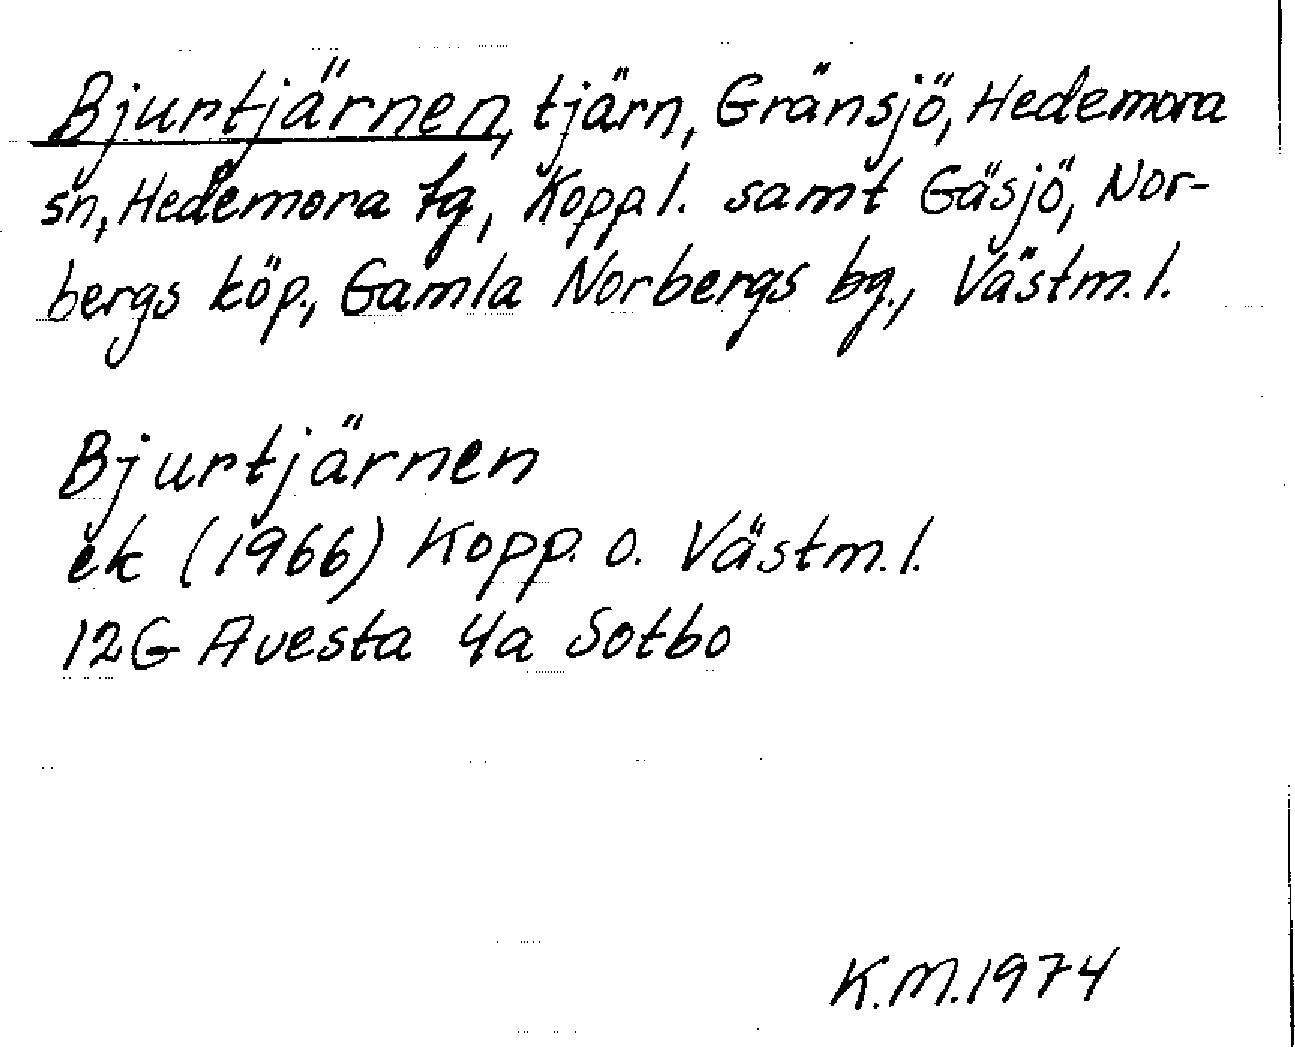 Bjurtjärnen, tjärn, Gränsjö, Hedemora
sn, Hedemora tg, Kopp.l. samt Gäsjö, Nor-
bergs köp., Gamla Norbergs bg., Västm.l.
Bjurtjärnen
ek (1966) Kopp. o. Västm.l.
12G Avesta 4a Sotbo
K.M.1974